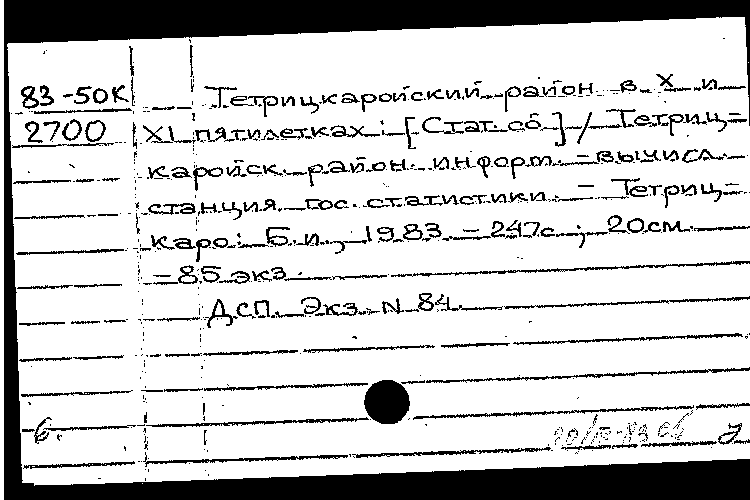 83-50К Тетрицкаройский район в X и
2700 XI пятилетках : [Стат. сб.] / Тетриц=
каройск. район. информ.-вычисл.
станция гос. статистики. - Тетриц=
каро : Б.и., 1983. - 247с. ; 20см.
- 85 экз.
ДСП. Экз. N 84.
6.